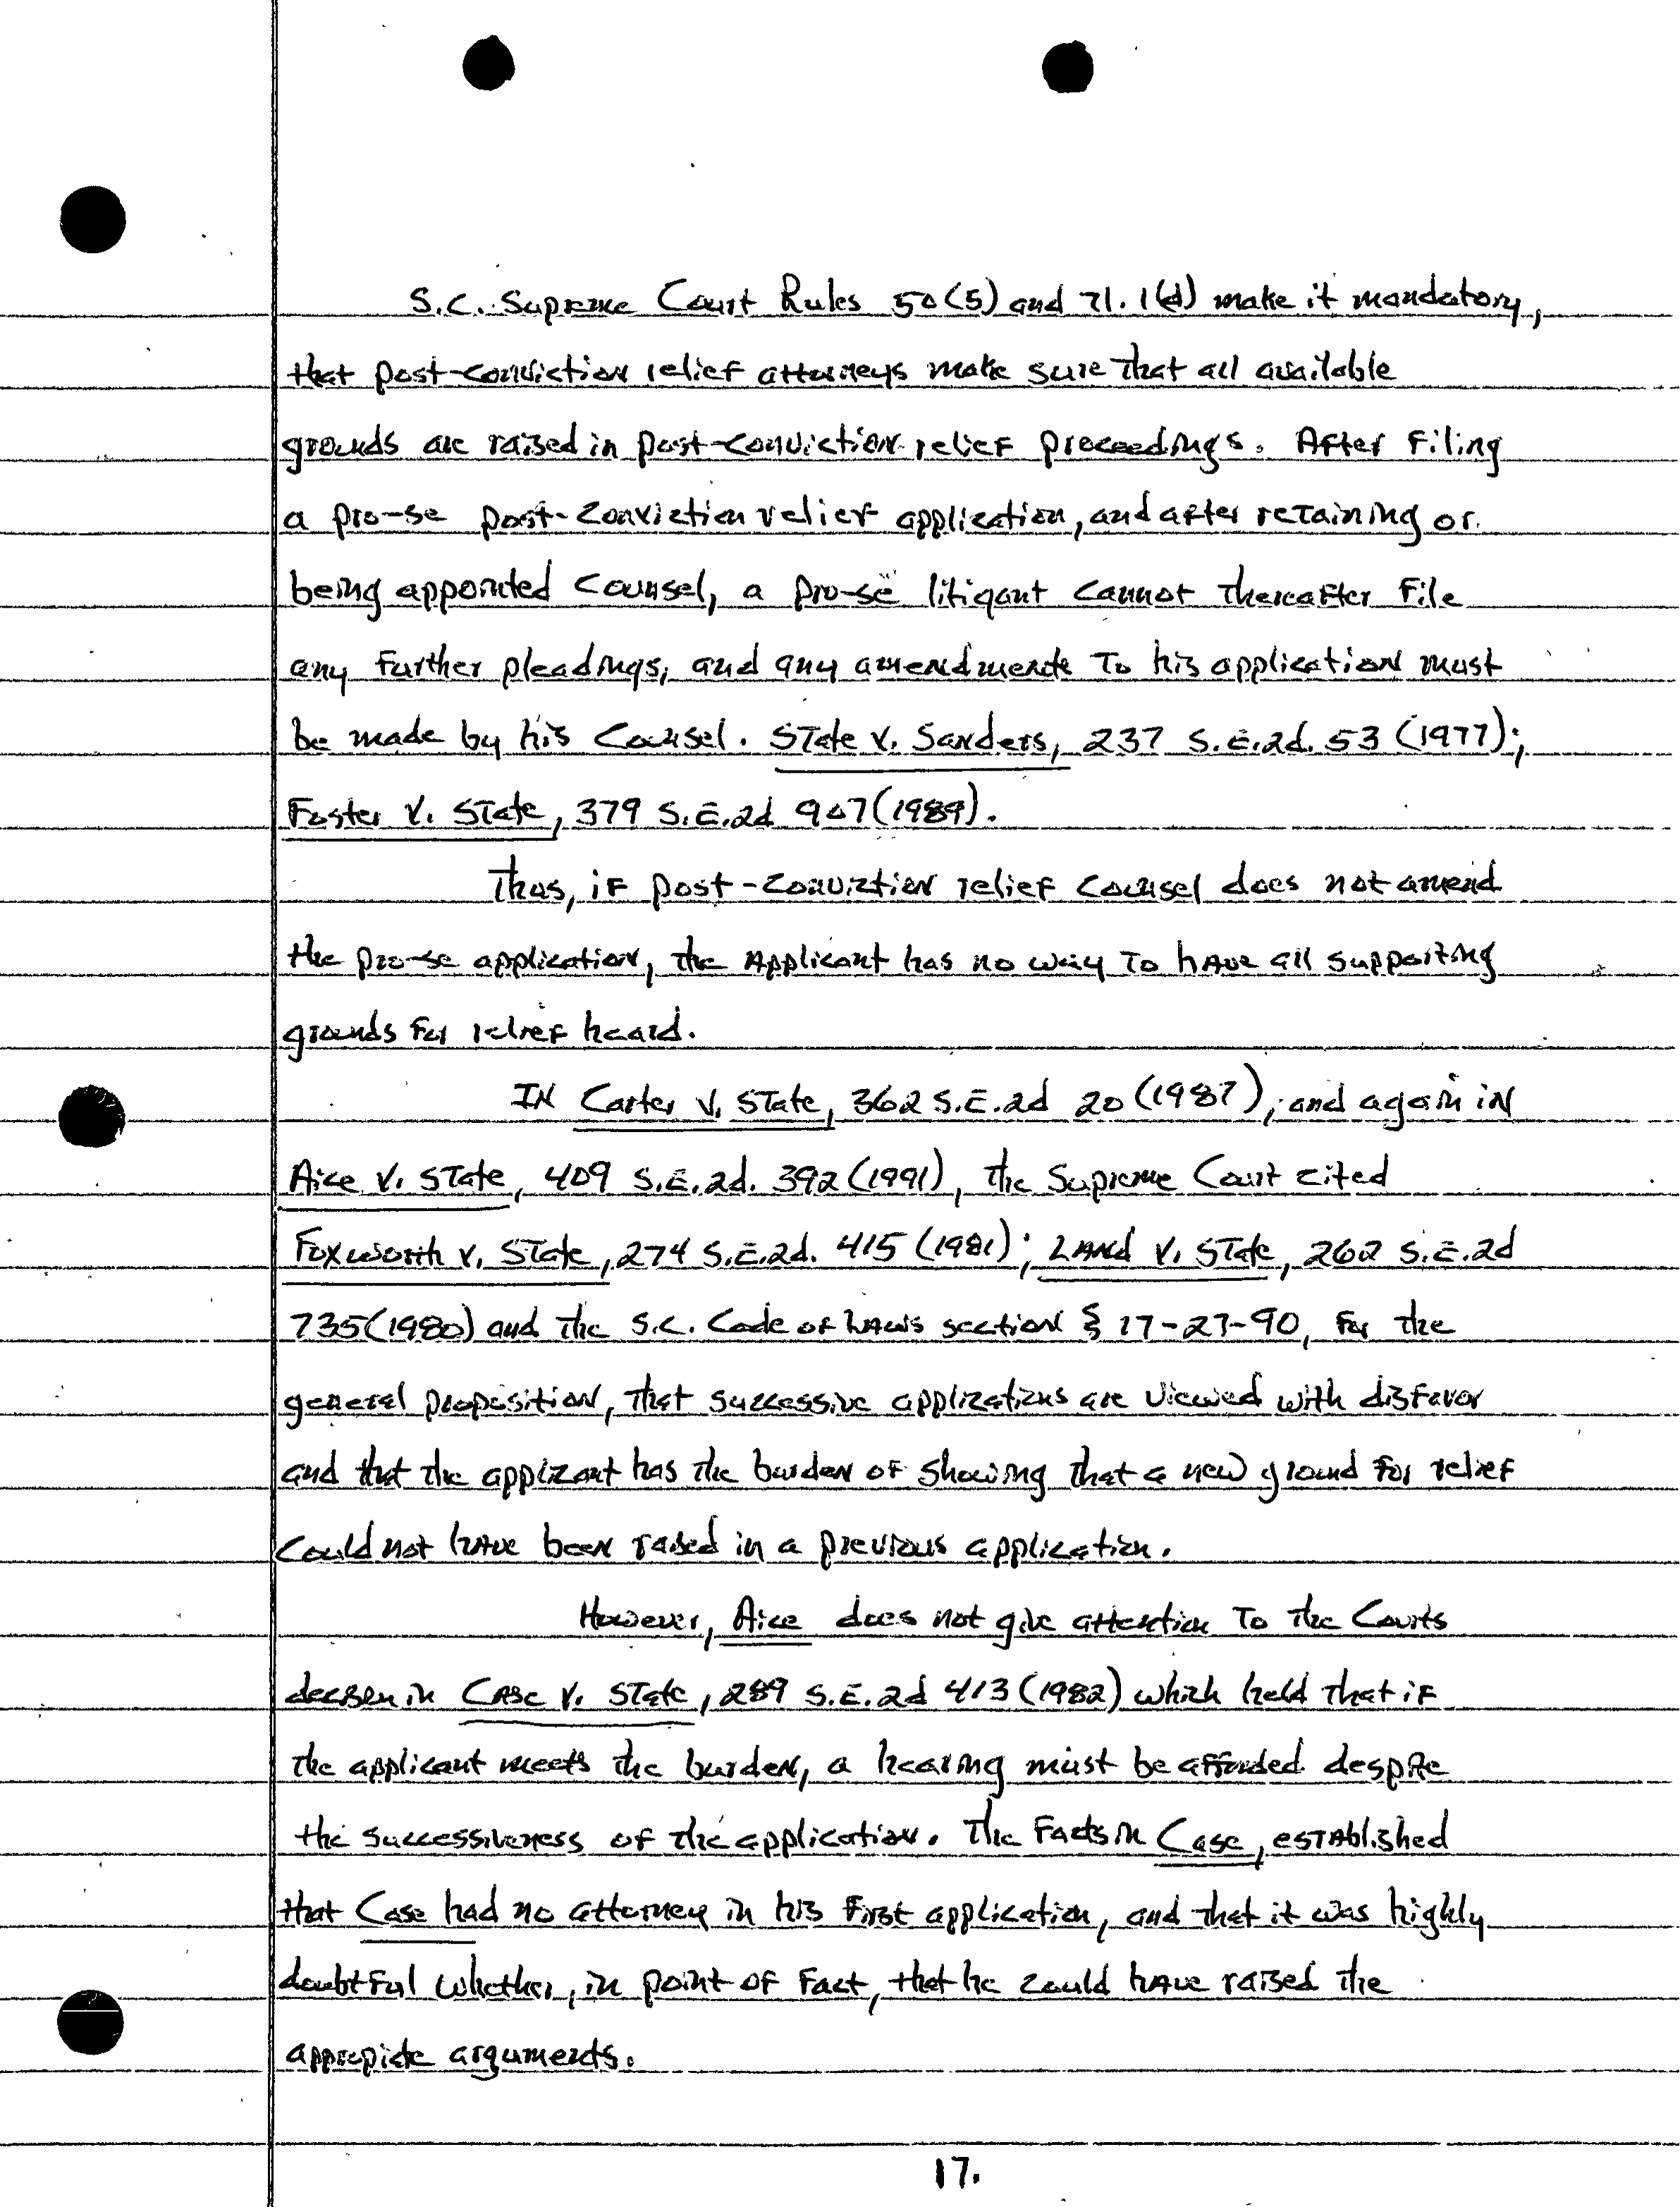 S.C. Supreme Court Rules 50(5) and 71.1(d) make it mandatory,
that post-conviction relief attorneys make sure that all available
grounds are raised in post-conviction relief proceedings. After filing
a pro-se post-conviction relief application, and after retaining or
being appointed counsel, a pro-se litigant cannot thereafter file
any further pleadings, and any amendments to his application must
be made by his counsel. State v. Sanders, 237 S.E.2d. 53 (1977);
Foster v. State, 379 S.E.2d 907 (1989).
Thus, if post-conviction relief counsel does not amend
the pro-se application, the Applicant has no way to have all supporting
grounds for relief heard.
IN Carter v. State, 362 S.E.2d 20 (1987), and again in
Aice v. State, 409 S.E.2d. 392 (1991), the Supreme Court cited
Foxworth v. State, 274 S.E.2d. 415 (1981); Land v. State, 262 S.E.2d
735 (1980) and the S.C. Code of Laws section § 17-27-90, for the
general proposition, that successive applications are viewed with disfavor
and that the applicant has the burden of showing that a new ground for relief
could not have been raised in a previous application.
However, Aice does not give attention to the Courts
decision in Case v. State, 289 S.E.2d 413 (1982) which held that if
the applicant meets the burden, a hearing must be afforded despite
the successiveness of the application. The facts in Case, established
that Case had no attorney in his first application, and that it was highly
doubtful whether, in point of fact, that he could have raised the
appropiate arguments.
17.